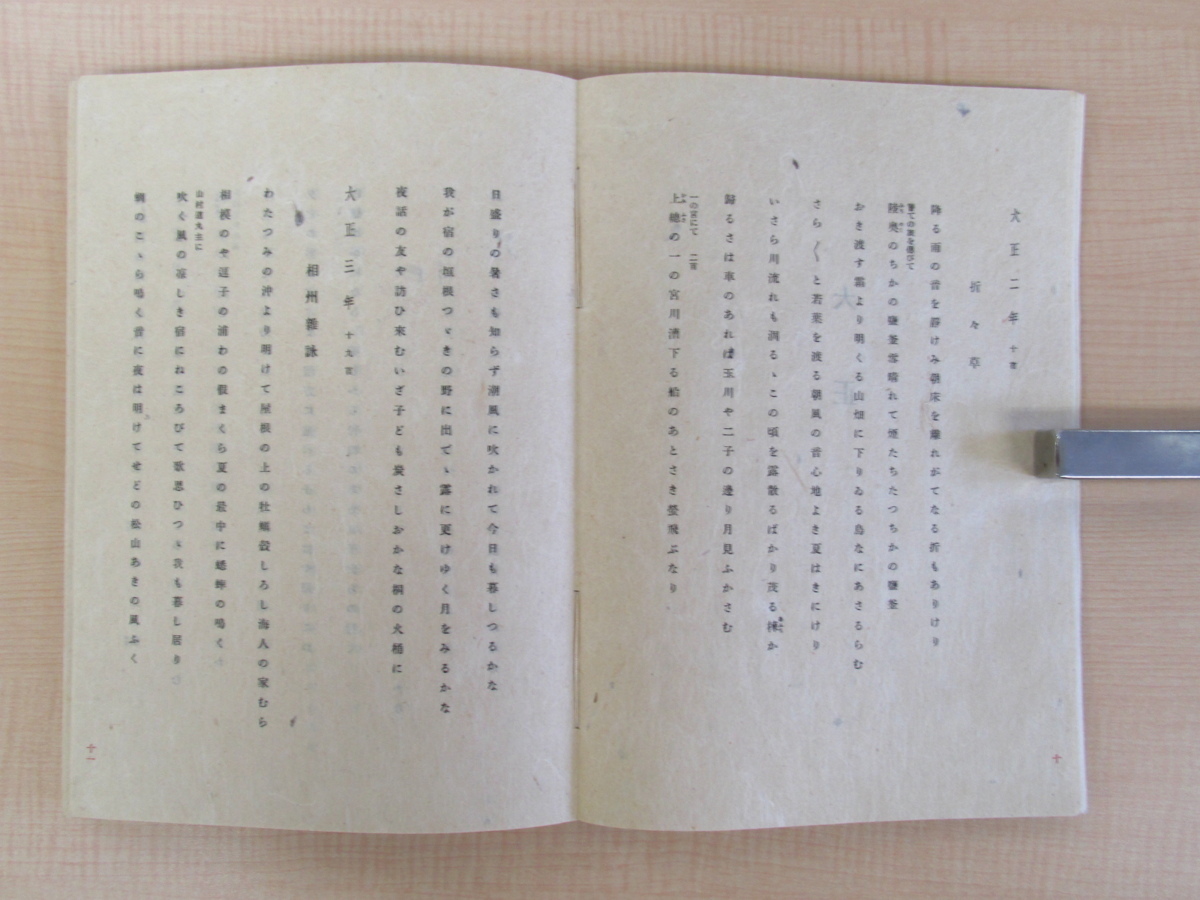 大正二年 十首
折々草
降る雨の音を静けみ朝床を離れがてなる折もありけり
曽ての旅を偲びて
陸奥のちかの塩釜雪晴れて煙たちたつちかの塩釜
おき渡す霜より明くる山畑に下りゐる鳥なにあさるらむ
さら〱と若葉を渡る朝風の音心地よき夏はきにけり
いさら川流れも涸るゝこの頃を露散るばかり茂る か
帰るさは車のあれば玉川や二子の辺り月見ふかさむ
一の宮にて 二首
上総の一の宮川漕下る船のあとさき蛍飛ぶなり
十
日盛りの暑さも知らず潮風に吹かれて今日も暮しつるかな
我が宿の垣根つゞきの野に出でゝ露に更けゆく月をみるかな
夜話の友や訪ひ来むいざ子ども炭さしおかな桐の火桶に
大正三年 十九首
相州雑詠
わたつみの沖より明けて屋根の上の牡蠣殻しろし海人の家むら
相模のや逗子の浦わの假まくら夏の最中に蟋蟀の鳴く
先生に
吹く風の凉しき宿にねころびて歌思ひつゝ我も暮し居り
蜩のこゝら鳴く音に夜は明けてせどの松山あきの風ふく
十一